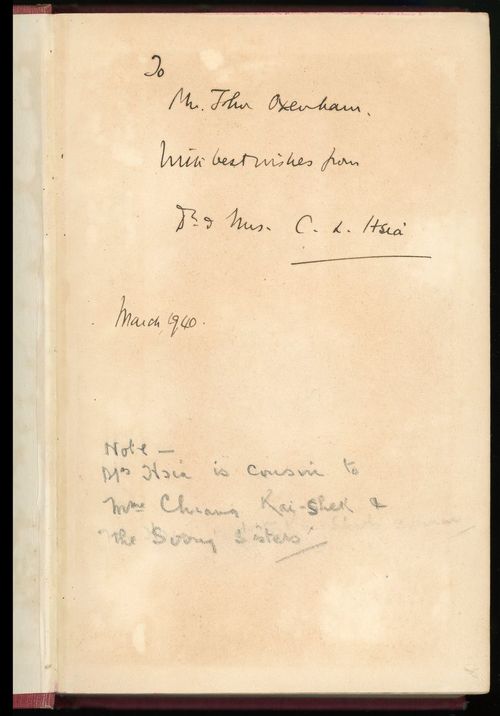 To
Mr. John Oxenham.
With best wishes from
Dr. & Mrs. C. L. Hsia
March, 1940.
Note —
Mrs Hsia is cousin to
Mme Chiang Kai-Shek &
"The Soong Sisters"